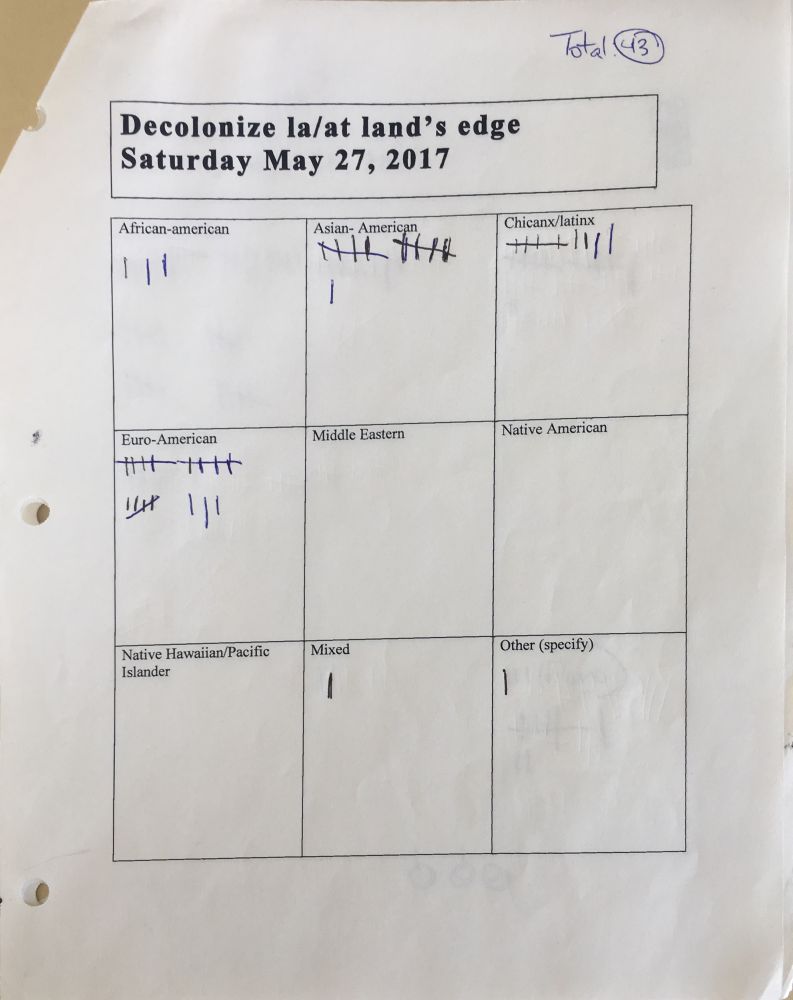 Total 43
Decolonize la/at land's edge
Saturday May 27, 2017
African-american
Asian- American
Chicanx/latinx
Euro-American
Middle Eastern
Native American
Native Hawaiian/Pacific
Islander
Mixed
Other (specify)